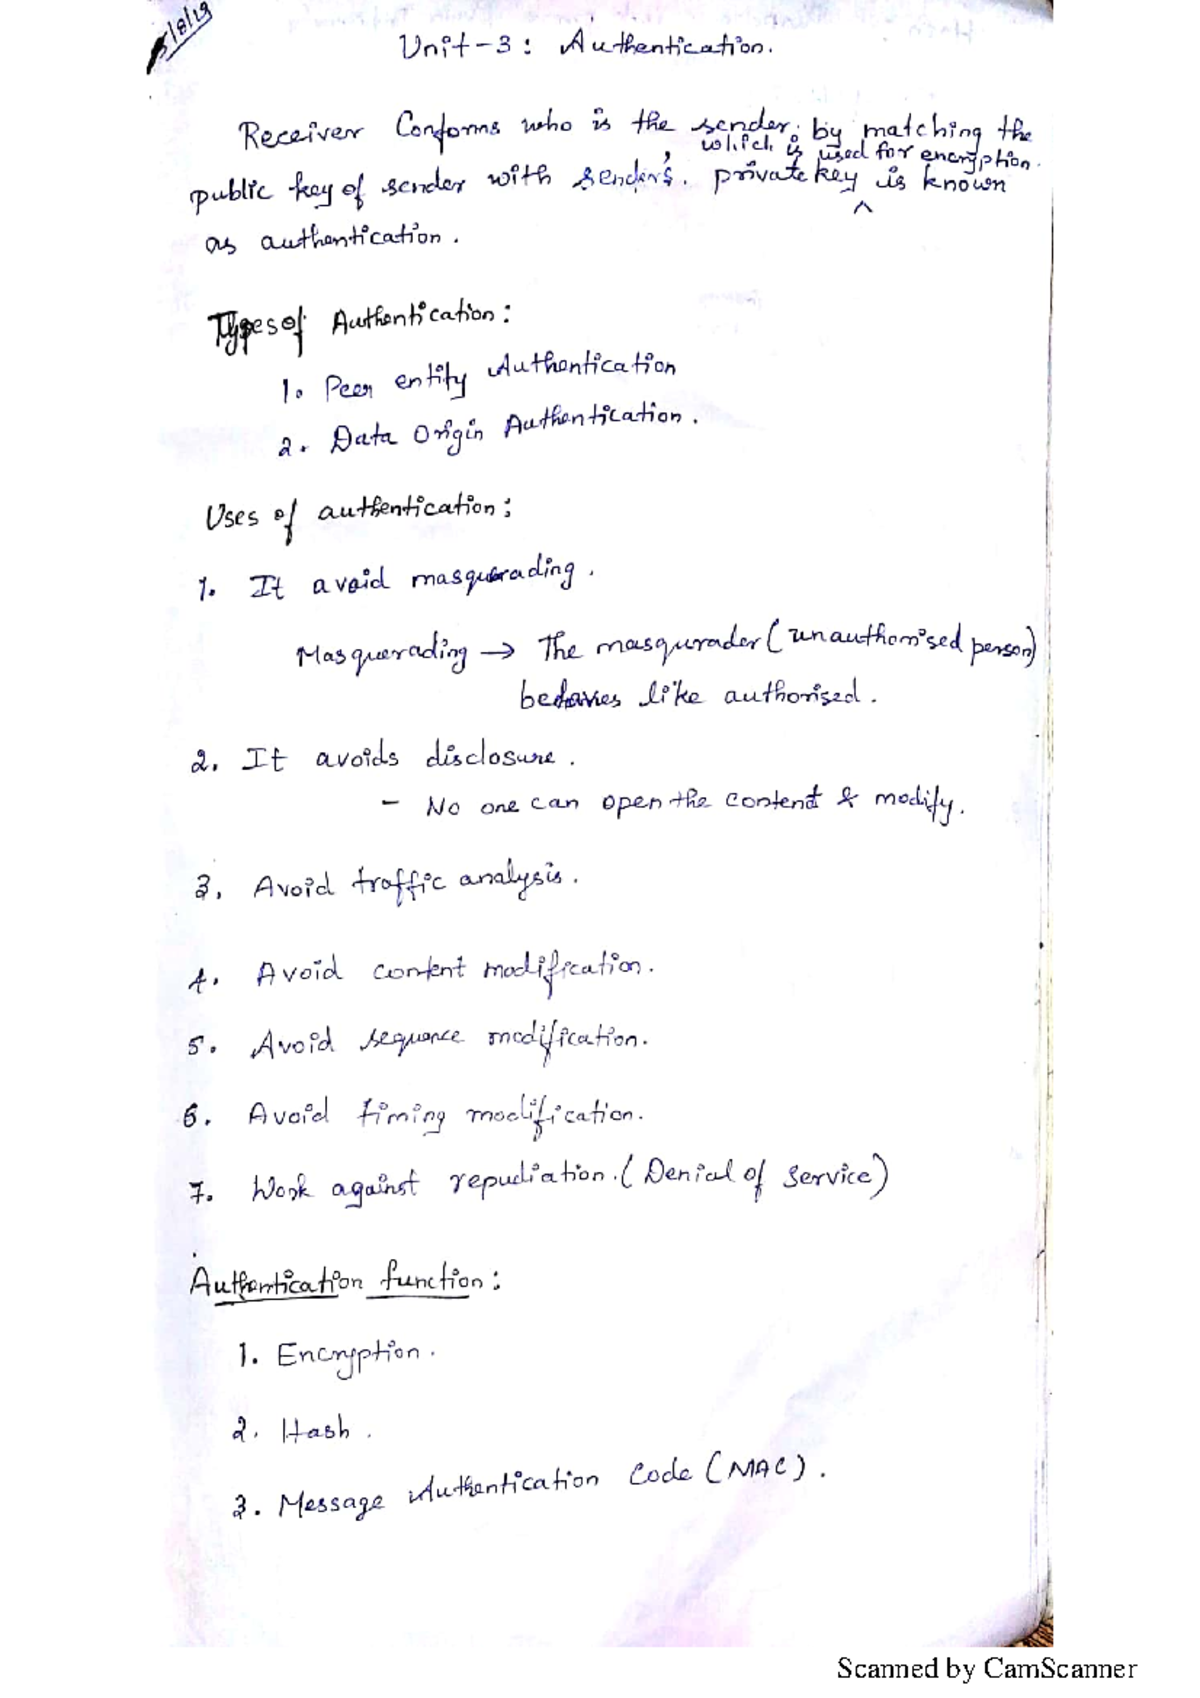 5/8/19
Unit-3: Authentication.
Receiver Conforms who is the sender, by matching the
which is used for encryption.
public key of sender with sender's. private key ^ is known
as authentication.
Types of Authentication:
1. Peer entity Authentication
2. Data Origin Authentication.
Uses of authentication:
1. It avoid masquerading.
Masquerading → The masqurader (unauthorised person)
behaves like authorised.
2. It avoids disclosure.
- No one can open the content & modify.
3. Avoid traffic analysis.
4. Avoid content modification.
5. Avoid sequence modification.
6. Avoid timing modification.
7. Work against repudiation. (Denial of service)
Authentication function:
1. Encryption.
2. Hash.
3. Message Authentication Code (MAC).
Scanned by CamScanner